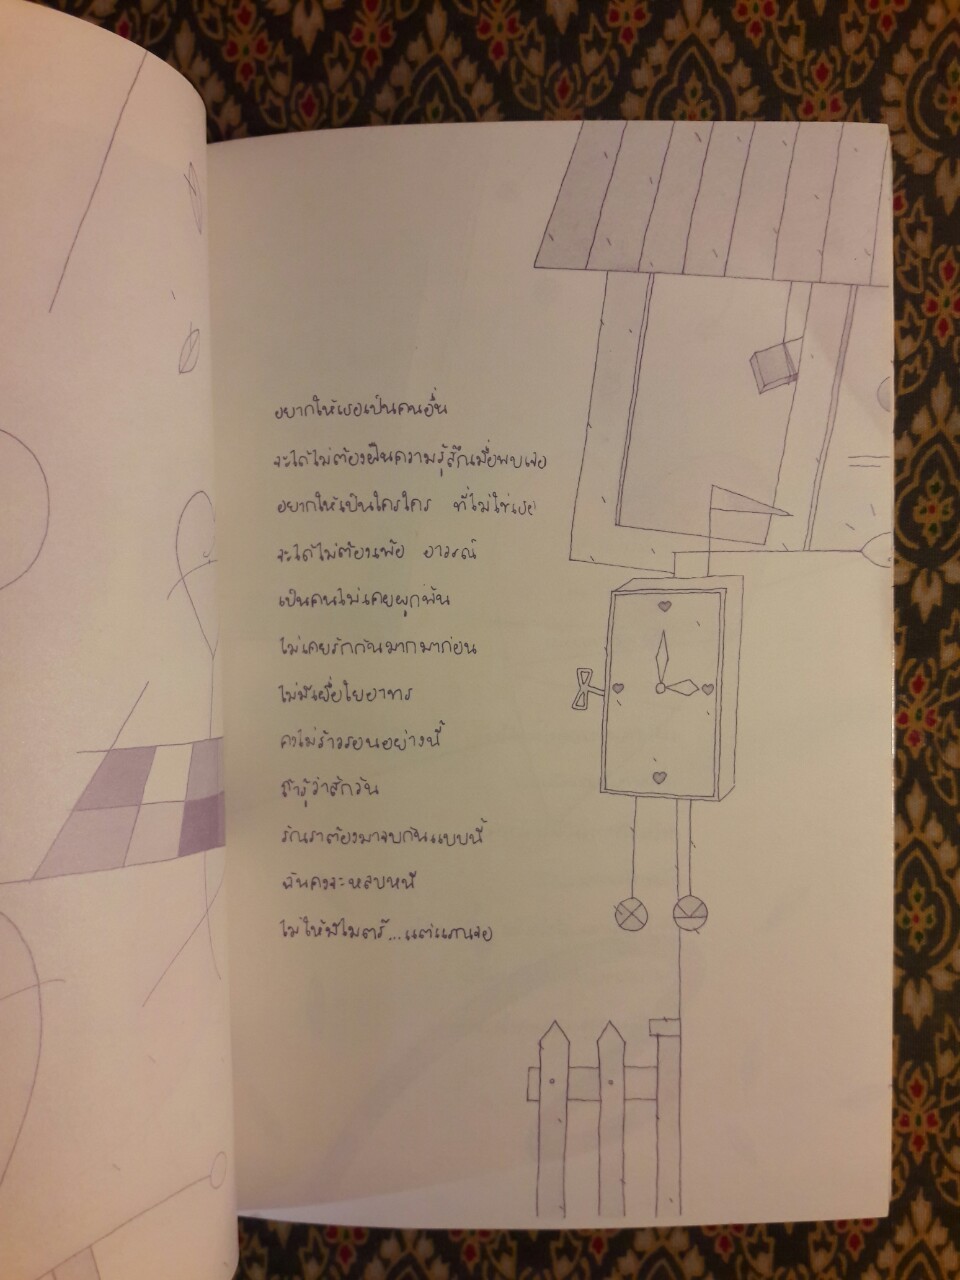 อยากให้เธอเป็นคนอื่น
จะได้ไม่ต้องฝืนความรู้สึกเมื่อพบเจอ
อยากให้เป็นใครใคร ที่ไม่ใช่เธอ
จะได้ไม่ต้องเพ้อ อาวรณ์
เป็นคนไม่เคยผูกพัน
ไม่เคยรักกันมากมาก่อน
ไม่มีเยื่อใยอาทร
คงไม่ร้าวรอนอย่างนี้
ถ้ารู้ว่าสักวัน
รักเราต้องมาจบกันแบบนี้
ฉันคงจะหลบหนี
ไม่ให้มีไมตรี...แต่แรกเจอ